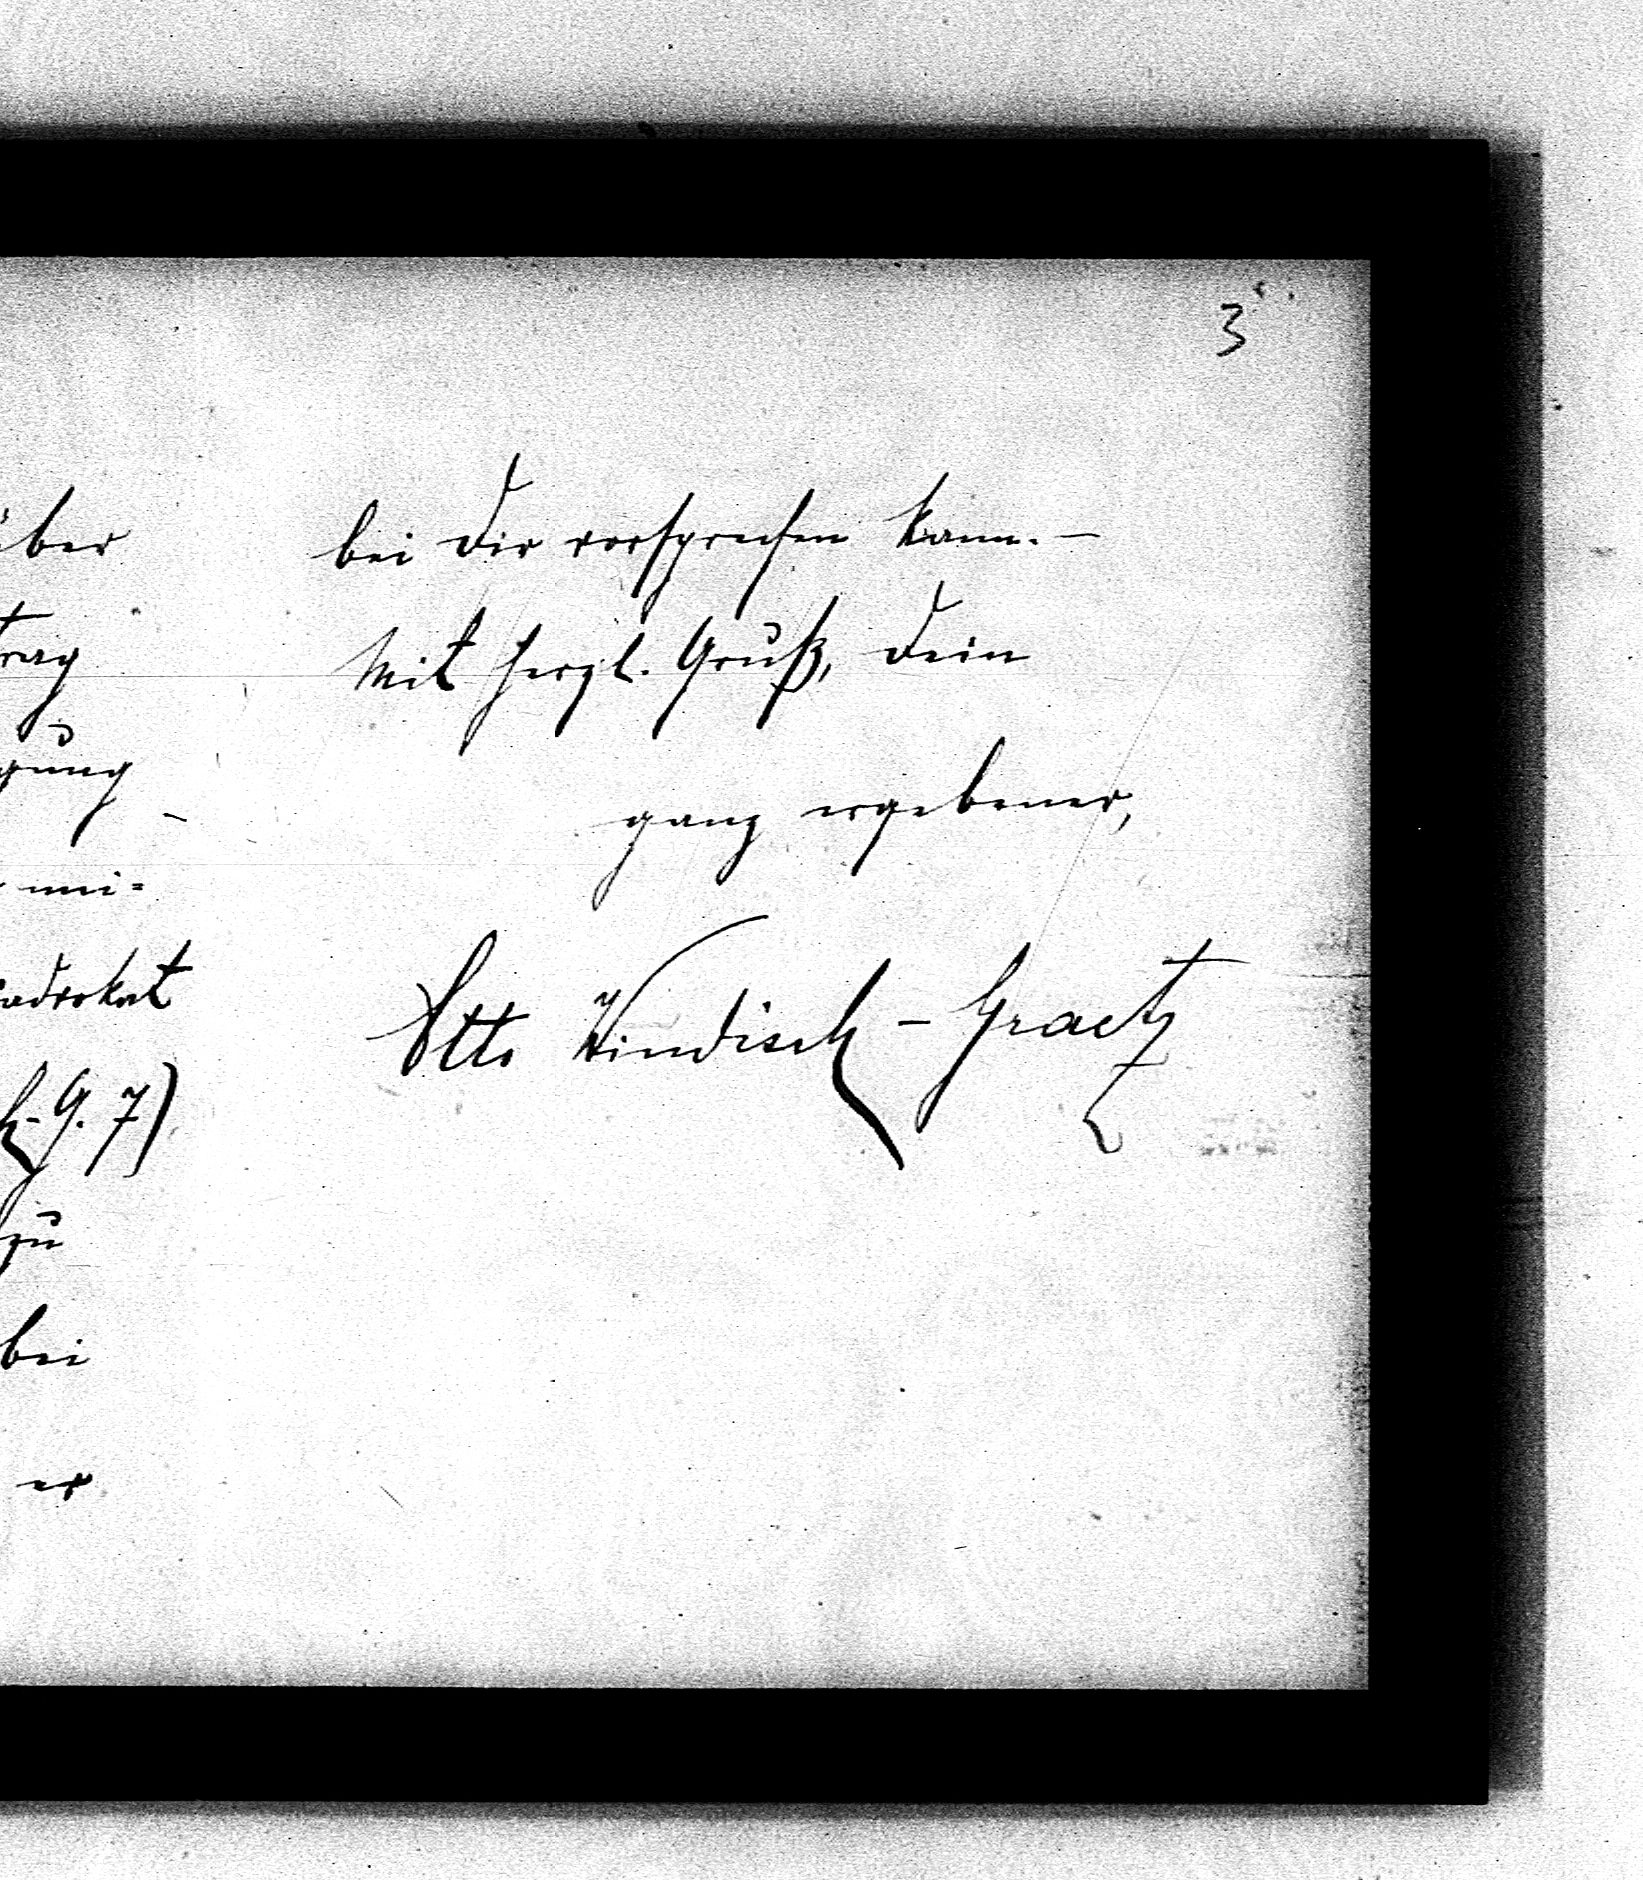 3
über
trag
gung
mei=
advokat
G. 7)
zu
bei
er
bei Dir vorsprechen kann. —
Mit herzl. Gruß, Dein
ganz ergebener,
Otto Windisch-Graetz